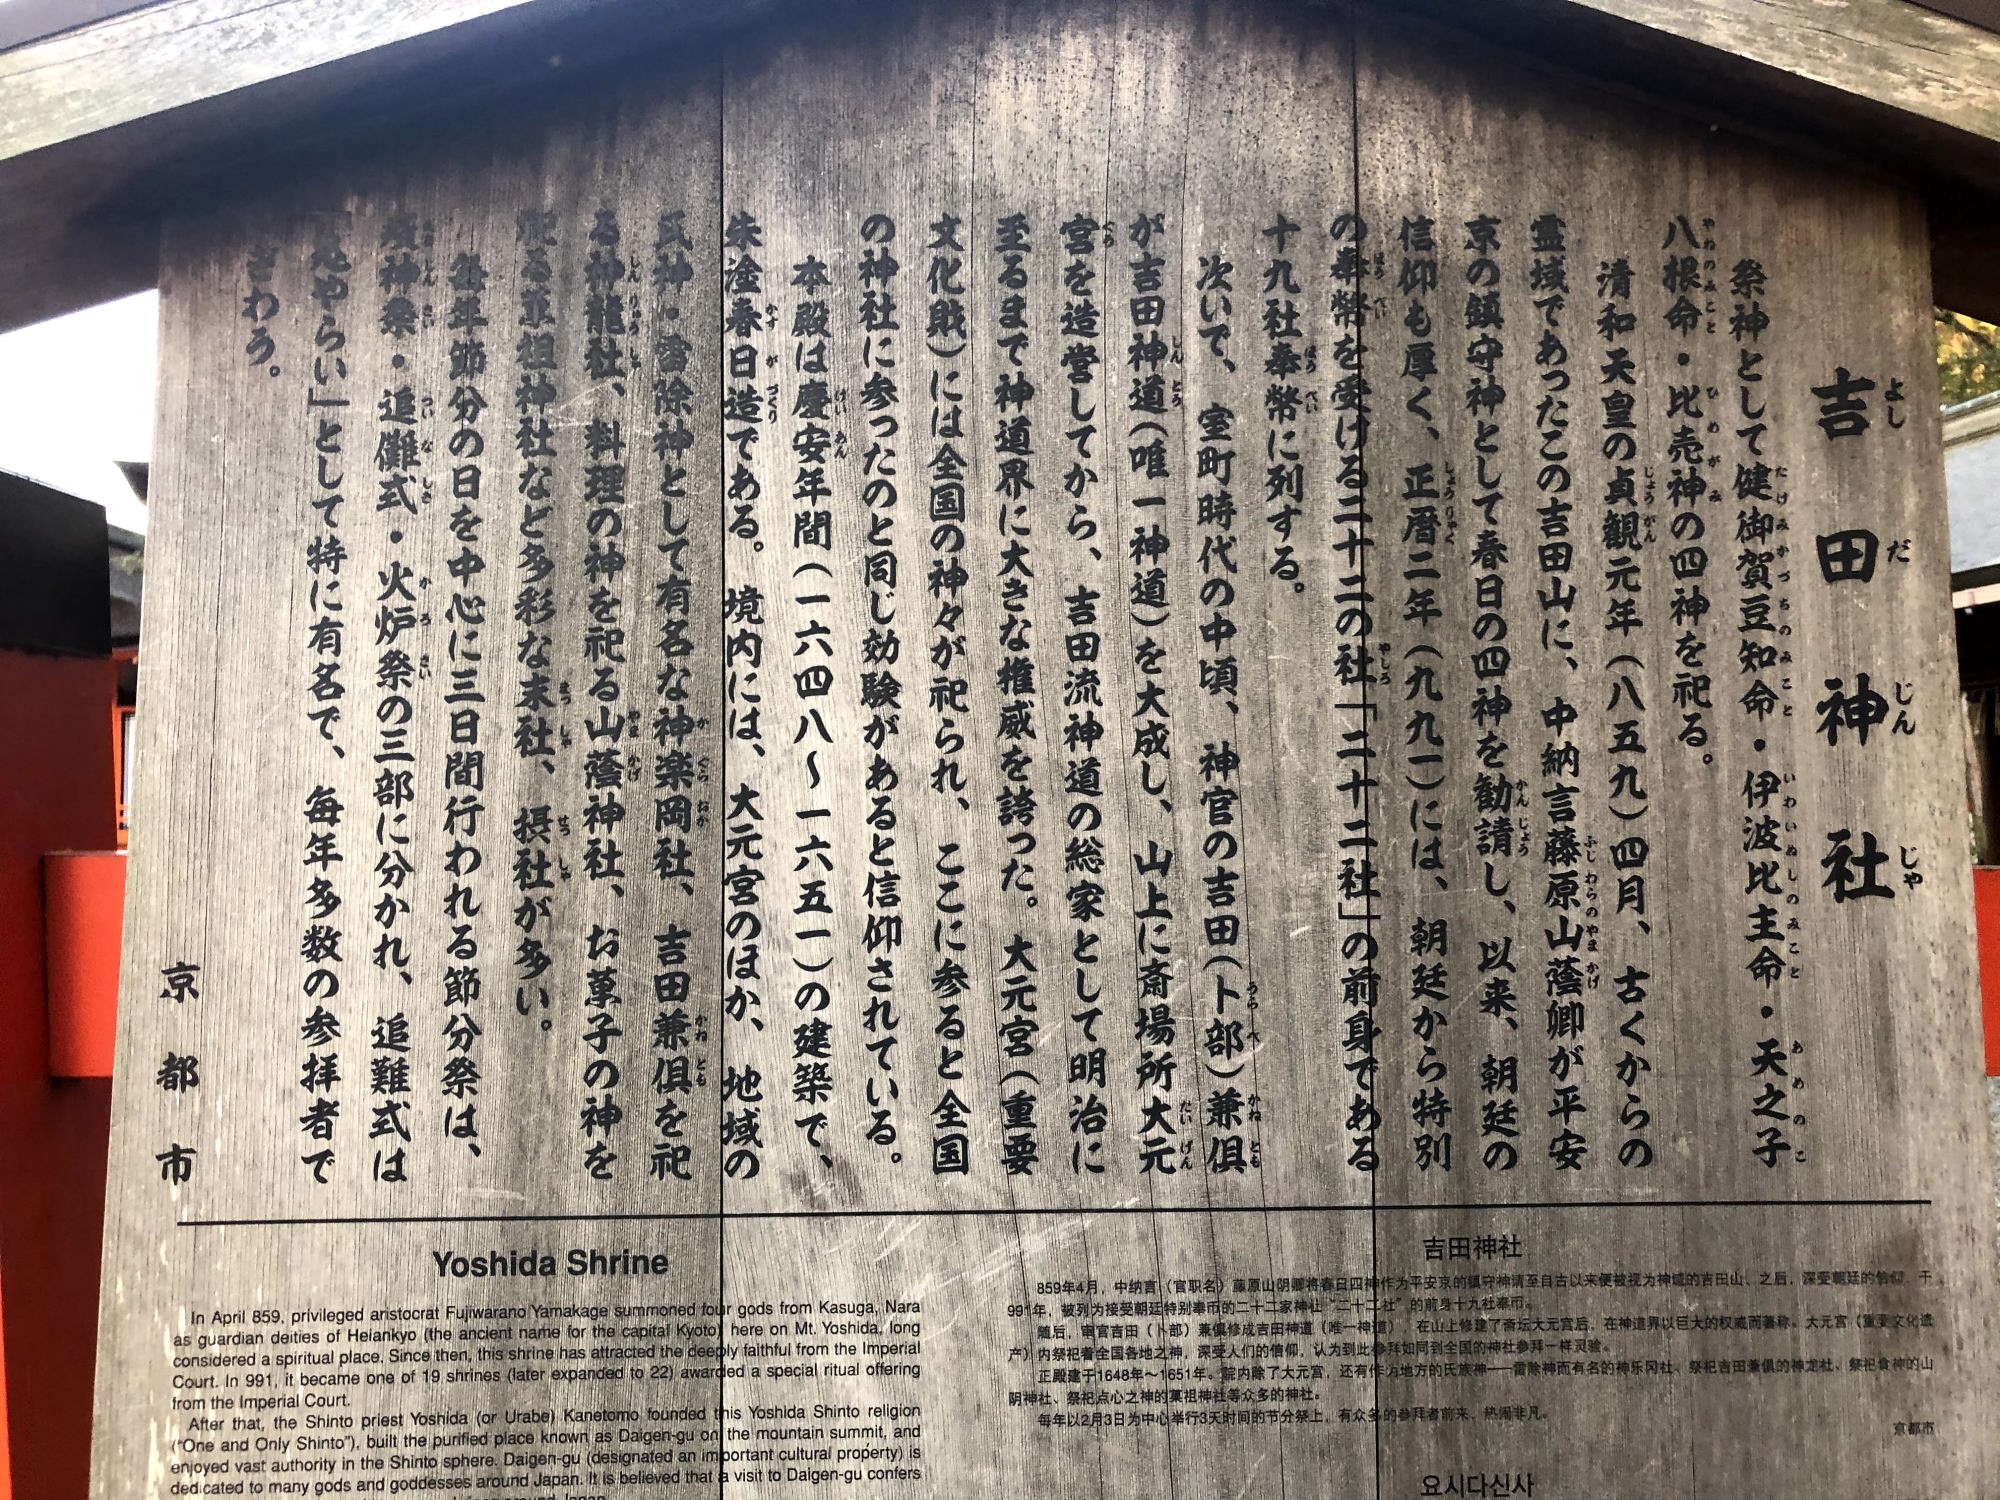 吉田神社
祭神として健御賀豆知命・伊波比主命・天之子
八根命・比売神の四神を祀る。
清和天皇の貞観元年（八五九）四月、古くからの
霊域であったこの吉田山に、中納言藤原山蔭卿が平安
京の鎮守神として春日の四神を勧請し、以来、朝廷の
信仰も厚く、正暦二年（九九一）には、朝廷から特別
の奉幣を受ける二十二の社「二十二社」の前身である
十九社奉幣に列する。
次いで、室町時代の中頃、神官の吉田（卜部）兼倶
が吉田神道（唯一神道）を大成し、山上に斎場所大元
宮を造営してから、吉田流神道の総家として明治に
至るまで神道界に大きな権威を誇った。大元宮（重要
文化財）には全国の神々が祀られ、ここに参ると全国
の神社に参ったのと同じ効験があると信仰されている。
本殿は慶安年間（一六四八～一六五一）の建築で、
朱塗春日造である。境内には、大元宮のほか、地域の
氏神・雷除神として有名な神楽岡社、吉田兼倶を祀
る神龍社、料理の神を祀る山蔭神社、お菓子の神を
祀る菓祖神社など多彩な末社、摂社が多い。
毎年節分の日を中心に三日間行われる節分祭は、
疫神祭・追儺式・火炉祭の三部に分かれ、追難式は
「鬼やらい」として特に有名で、毎年多数の参拝者で
賑わう。
京都市
Yoshida Shrine
In April 859, privileged aristocrat Fujiwarano Yamakage summoned four gods from Kasuga, Nara
as guardian deities of Heiankyo (the ancient name for the capital Kyoto) here on Mt. Yoshida, long
considered a spiritual place. Since then, this shrine has attracted the deeply faithful from the Imperial
Court. In 991, it became one of 19 shrines (later expanded to 22) awarded a special ritual offering
from the Imperial Court.
After that, the Shinto priest Yoshida (or Urabe) Kanetomo founded this Yoshida Shinto religion
("One and Only Shinto"), built the purified place known as Daigen-gu on the mountain summit, and
enjoyed vast authority in the Shinto sphere. Daigen-gu (designated an important cultural property) is
dedicated to many gods and goddesses around Japan. It is believed that a visit to Daigen-gu confers
吉田神社
859年4月，中纳言（官职名）藤原山阴卿将春日四神作为平安京的镇守神请至自古以来便被视为神域的吉田山、之后，深受朝廷的信仰，于
991年，被列为接受朝廷特别奉币的二十二家神社“二十二社”的前身十九社奉币。
随后，审官吉田（卜部）兼俱修成吉田神道（唯一神道），在山上修建了斋坛大元宫后，在神道界以巨大的权威而著称。大元宫（重要文化遗
产）内祭祀着全国各地之神，深受人们的信仰，认为到此参拜如同到全国的神社参拜一样灵验。
正殿建于1648年～1651年。院内除了大元宫，还有作为地方的氏族神——雷除神而有名的神乐冈社、祭祀吉田兼俱的神龙社、祭祀食神的山
阴神社、祭祀点心之神的菓祖神社等众多的神社。
每年以2月3日为中心举行3天时间的节分祭上，有众多的参拜者前来，热闹非凡。
京都市
요시다신사